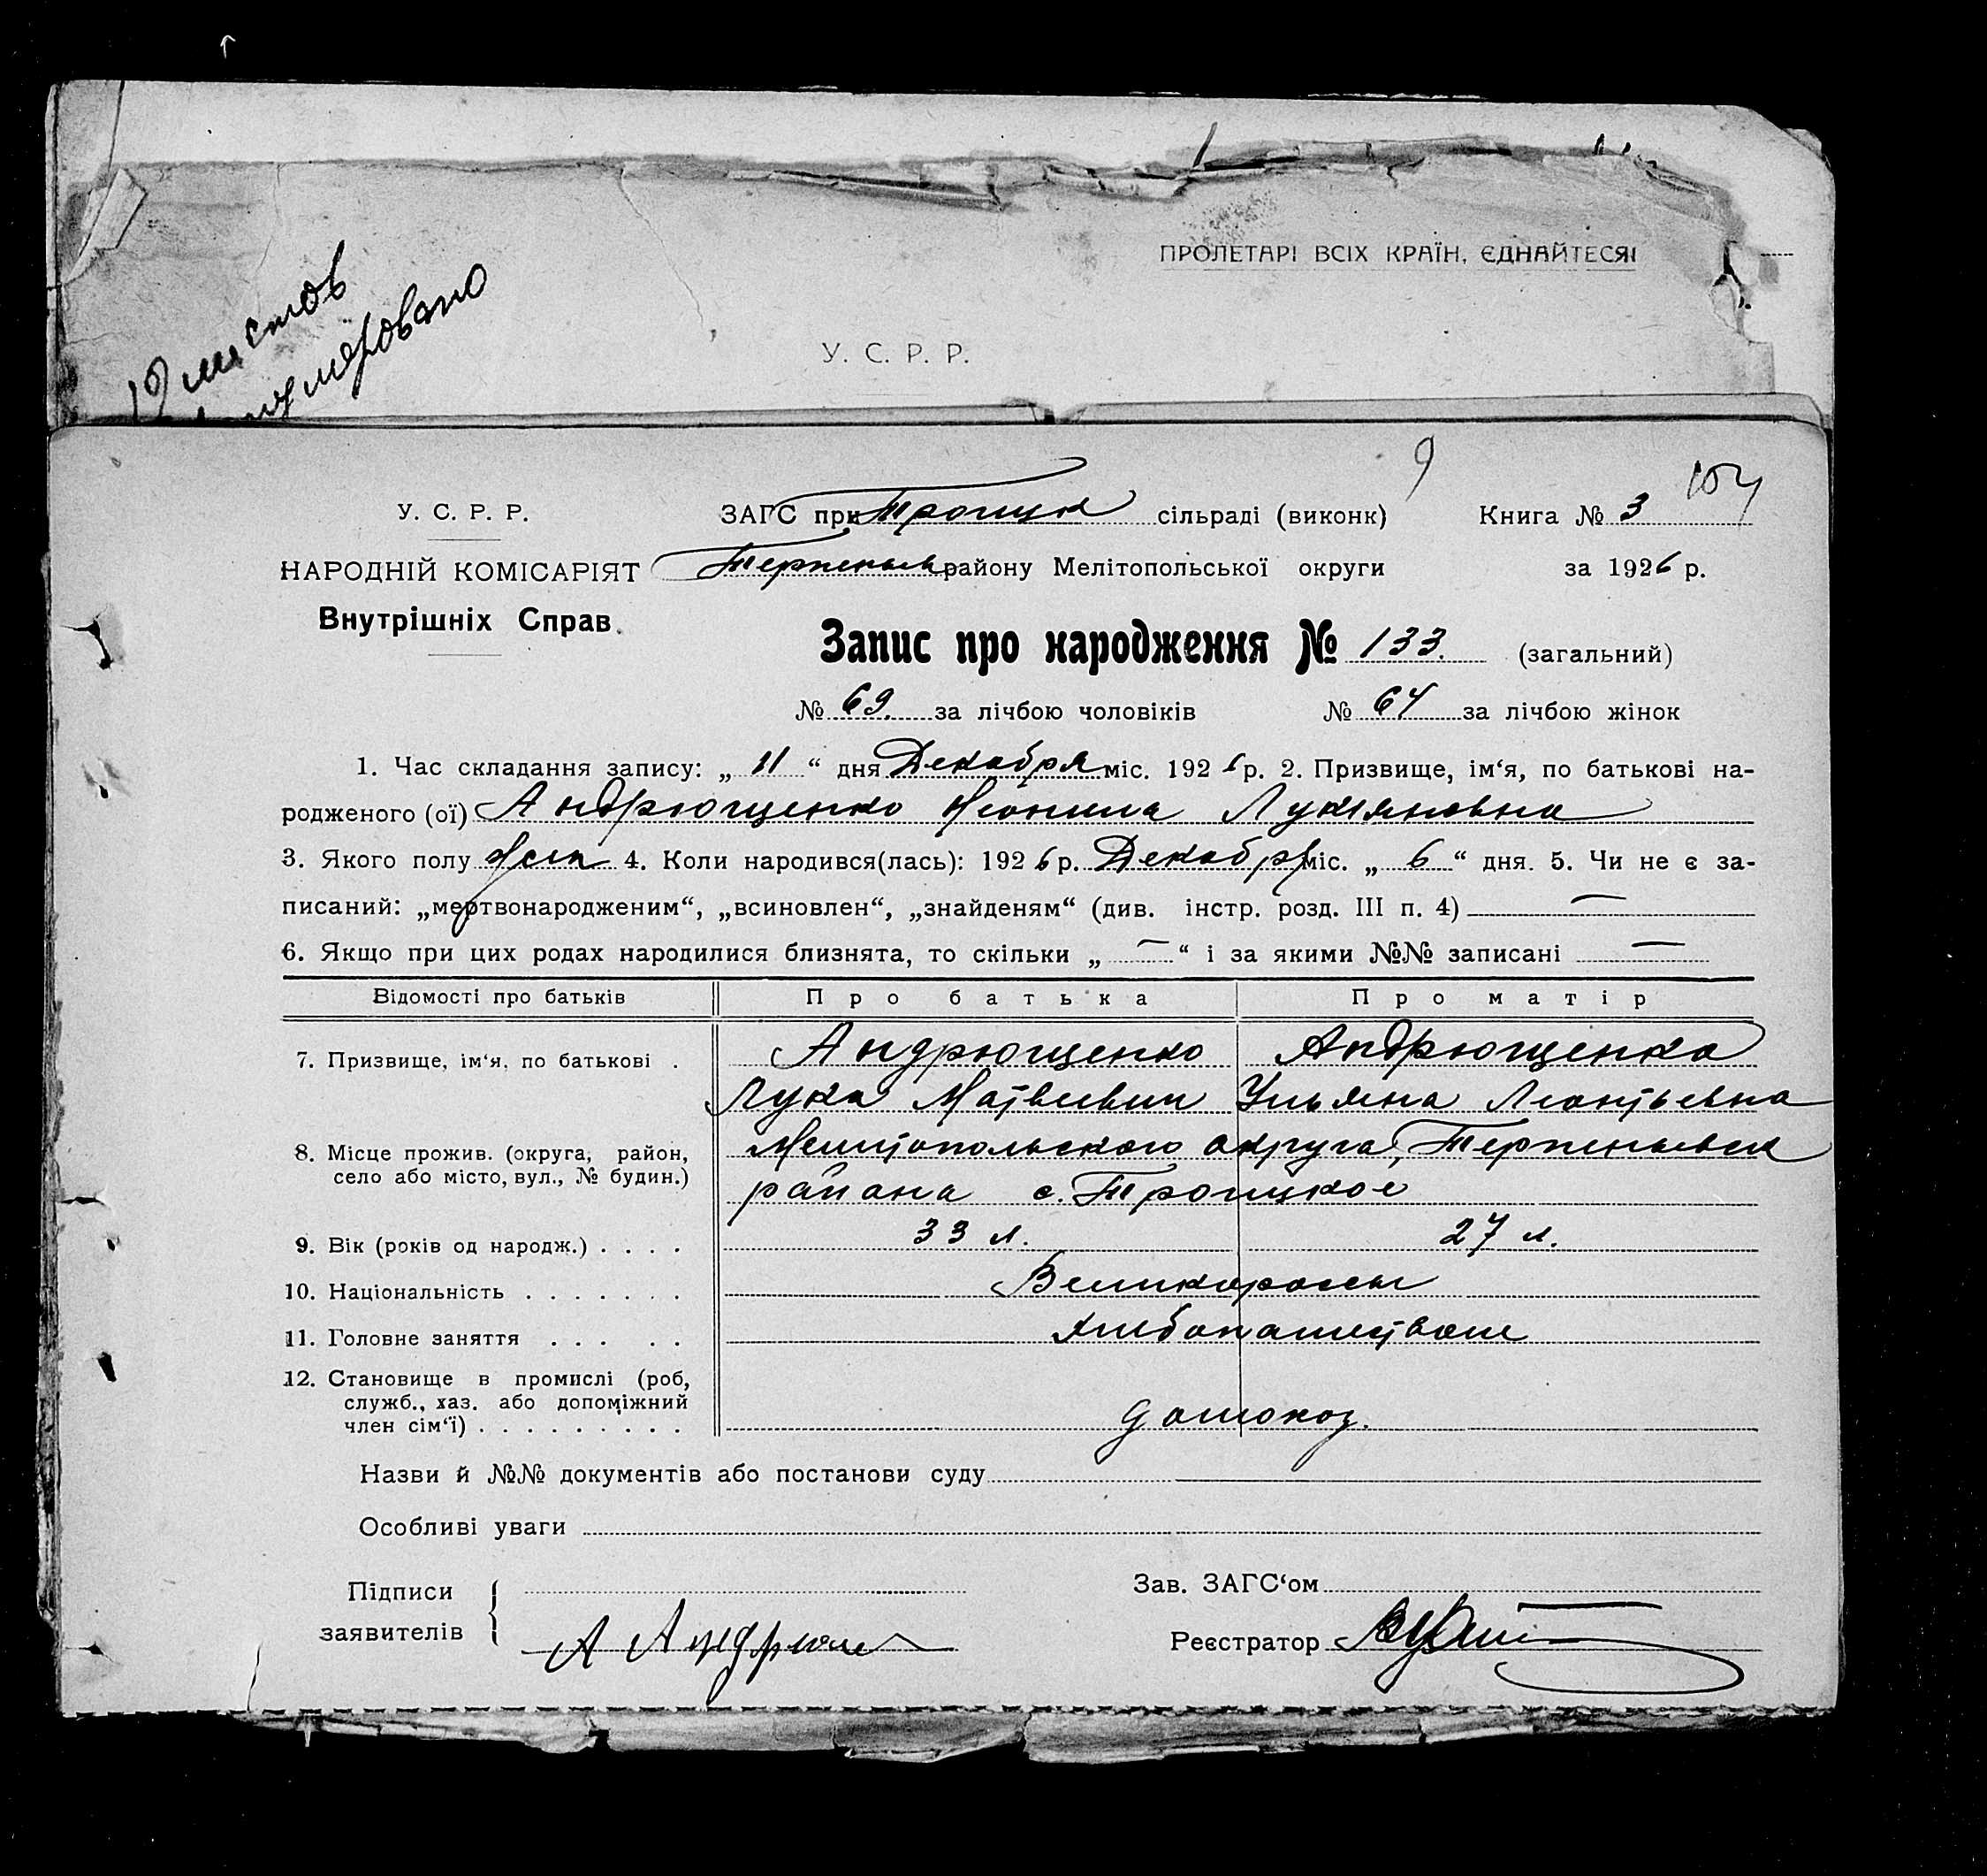 ПРОЛЕТАРІ ВСІХ КРАЇН, ЄДНАЙТЕСЯ!
19 листов
пронумеровано
У. С. Р. Р.
9
104
У. С. Р. Р.
ЗАГС при Троицк сільраді (виконк) Книга № 3
НАРОДНІЙ КОМІСАРІЯТ Терпеньев району Мелітопольської округи за 1926 р.
Внутрішніх Справ.
Запис про народження № 133. (загальний)
№ 69. за лічбою чоловіків № 64 за лічбою жінок
1. Час складання запису: „ 11 “ дня Декабря міс. 1926 р. 2. Призвище, ім‘я, по батькові на-
родженого (ої) Андрющенко Неонила Лукияновна
3. Якого полу жен 4. Коли народився(лась): 1926 р. Декабря міс. „ 6 “ дня. 5. Чи не є за-
писаний: „мертвонародженим“, „всиновлен“, „знайденям“ (див. інстр. розд. III п. 4) —
6. Якщо при цих родах народилися близнята, то скільки „ — “ і за якими №№ записані —
Відомості про батьків Про батька Про матір
7. Призвище, ім‘я, по батькові . Андрющенко Андрющенко
Лука Матвеевич Ульяна Леонтьевна
8. Місце прожив. (округа, район, село або місто, вул., № будин.) Мелитопольского округа, Терпеньевск
района с. Троицкое
9. Вік (років од народж.) . . . . 33 л. 27 л.
10. Національність . . . . . . . Великороссы
11. Головне заняття . . . . . Хлебопашество
12. Становище в промислі (роб,
служб., хаз. або допоміжний
член сім‘ї) . . . . . . . . . домохоз.
Назви й №№ документів або постанови суду
Особливі уваги
Підписи Зав. ЗАГС‘ом
заявителів А Андрющ Реєстратор